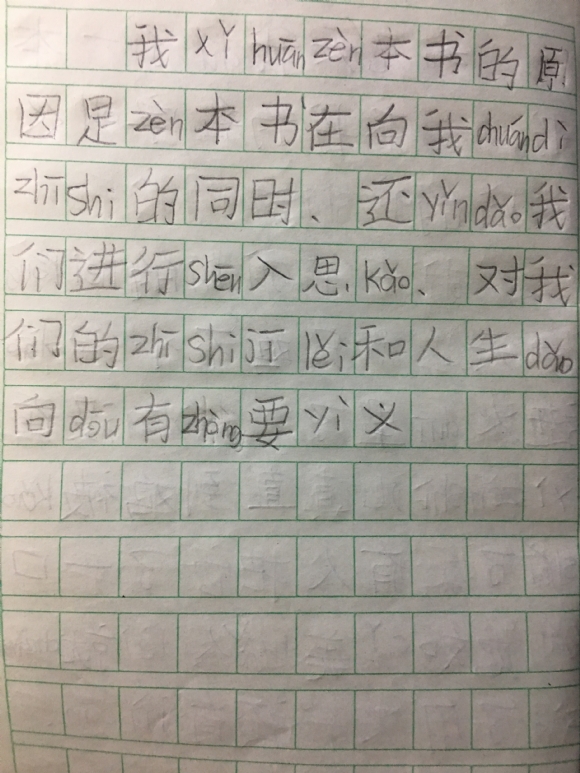 我xǐhuānzèn本书的原
因是zèn本书在向我chuándì
zhīshi的同时、还yǐndǎo我
们进行shēn入思kǎo、对我
们的zhīshi江lěi和人生dǎo
向dōu有zhòng要yì义